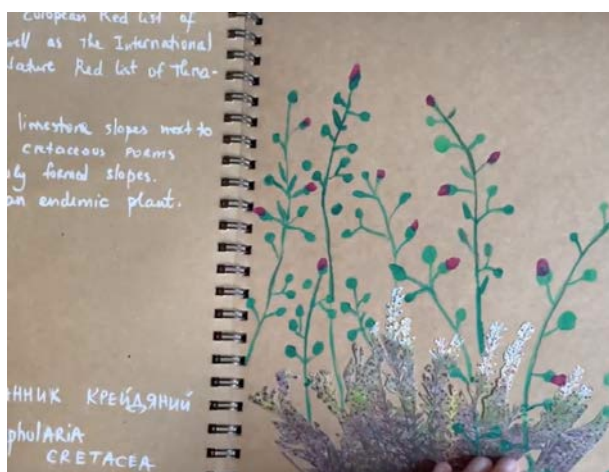 European Red List of
well as the International
Nature Red list of Threa-
limestone slopes next to
cretaceous forms
formed slopes.
an endemic plant.
ННИК КРЕЙДЯНИЙ
phulARIA
CRETACEA